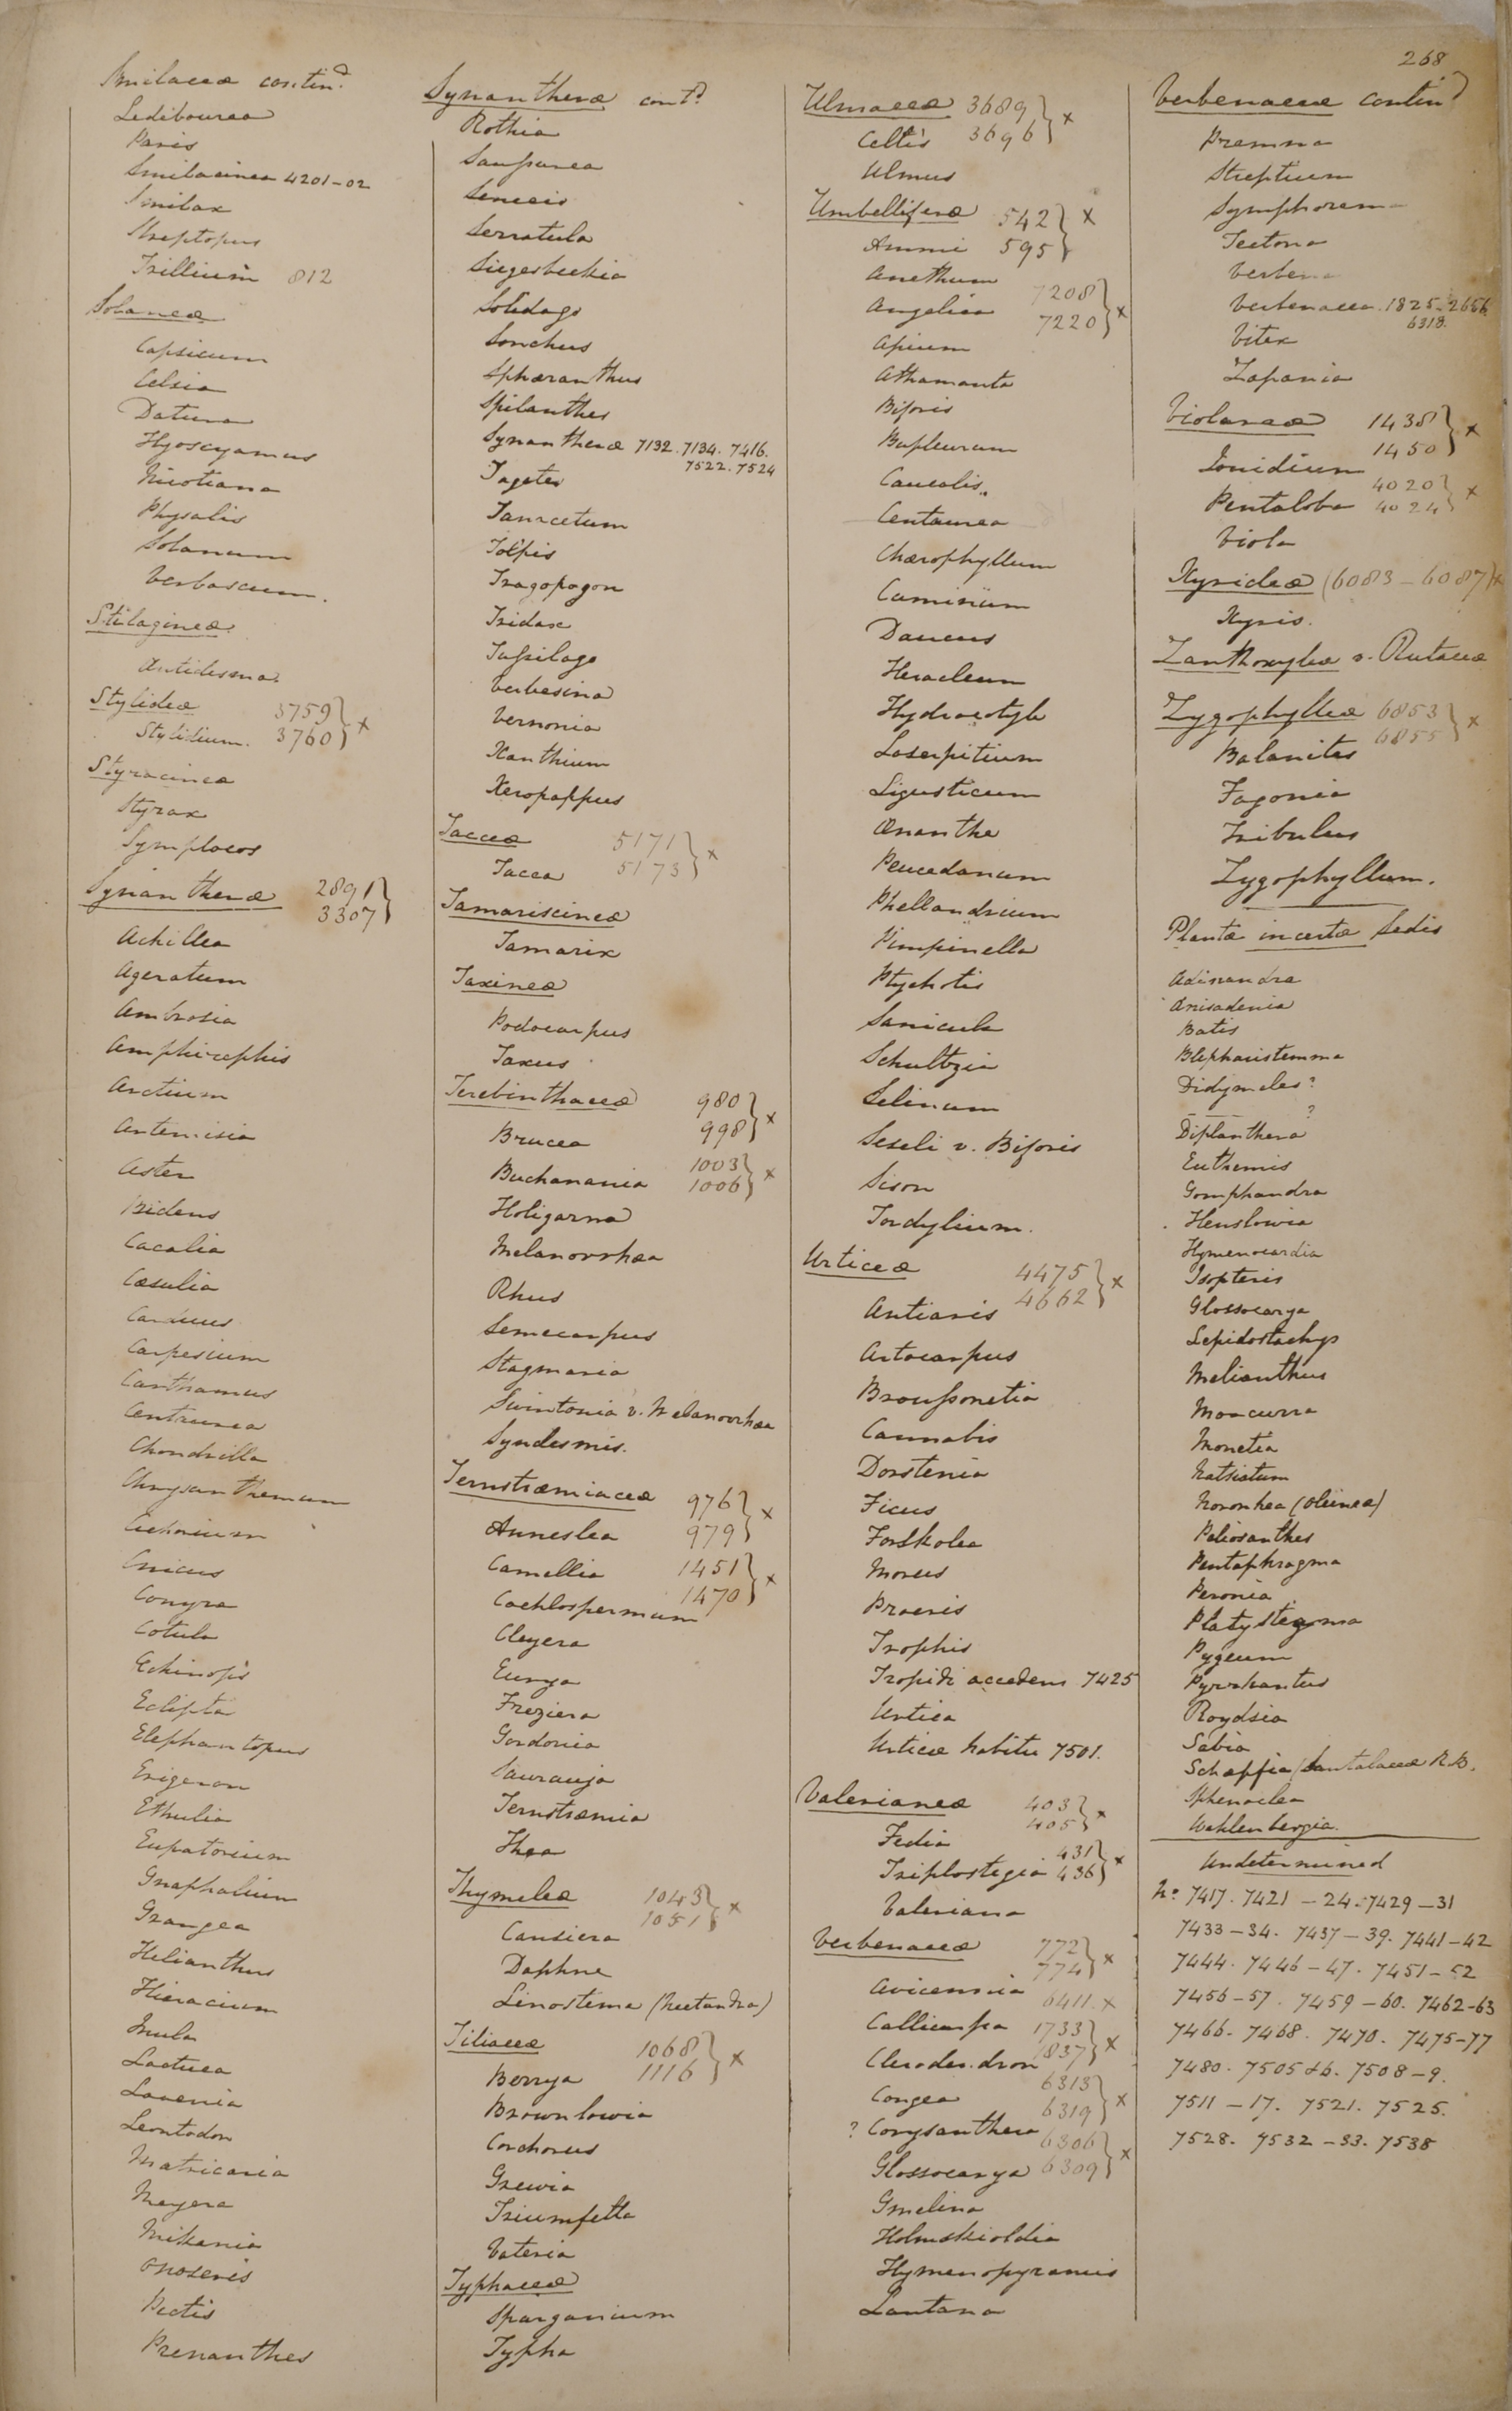 268
Smilaceæ contind.
Ledibourea
Paris
Smilacinea 4201-02
Smilax
Streptopus
Trillium 812
Solaneæ
Capsicum
Celsia
Datura
Hyoscyamus
Nicotiana
Physalis
Solanum
Verbascum.
Stilagineæ
Antidesma
Stylideæ 3759
Stylidium. 3760 } x
Styracineæ
Styrax
Symplocos
Synantheræ 2891
3307 }
Achillea
Ageratum
Ambrosia
Amphirephis
Arctium
Artemisia
Aster
Bidens
Cacalia
Cæsulia
Carduus
Carpesium
Carthamus
Centaurea
Chondrilla
Chrysanthemum
Cichorium
Cnicus
Conyza
Cotula
Echinops
Eclipta
Elephantopus
Erigeron
Ethulia
Eupatorium
Gnaphalium
Grangea
Helianthus
Hieracium
Inula
Lactuca
Lavenia
Leontodon
Matricaria
Meyera
Mikania
Onoseris
Pectis
Prenanthes
Synantheræ contd.
Rothia
Saussurea
Senecio
Serratula
Siegesbeckia
Solidago
Sonchus
Sphæranthus
Spilanthes
Synantheræ 7132. 7134. 7416.
7522. 7524
Tagetes
Tanacetum
Tolpis
Tragopogon
Tridax
Tussilago
Verbesina
Vernonia
Xanthium
Xeropappus
Tacceæ 5171
Tacca 5173 } x
Tamariscineæ
Tamarix
Taxineæ
Podocarpus
Taxus
Terebinthaceæ 980
998 } x
Brucea
Buchanania 1003
1006 } x
Holigarna
Melanorrhæa
Rhus
Semecarpus
Stagmaria
Swintonia v. Melanorrhæa
Syndesmis.
Ternstræmiaceæ 976
979 } x
Anneslea
Camellia 1451
1470 } x
Cochlospermum
Cleyera
Eurya
Freziera
Gordonia
Saurauja
Ternstræmia
Thea
Thymeleæ 1043
1051 } x
Cansiera
Daphne
Linostema (Nectandra)
Tiliaceæ 1068
1116 } x
Berrya
Brownlowia
Corchorus
Grewia
Triumfetta
Vateria
Typhaceæ
Sparganium
Typha
Ulmaceæ 3689
Celtis 3696 } x
Ulmus
Umbelliferæ 542
Ammi 595 } x
Anethum
Angelica 7208
7220 } x
Apium
Athamanta
Biforis
Bupleurum
Caucalis
Centaurea
Chærophyllum
Cuminum
Daucus
Heracleum
Hydrocotyle
Laserpitium
Ligusticum
Œnanthe
Peucedanum
Phellandrium
Pimpinella
Ptychotis
Sanicula
Schultzia
Selinum
Seseli v. Biforis
Sison
Tordylium.
Urticeæ 4475
4662 } x
Antiaris
Artocarpus
Broussonetia
Cannabis
Dorstenia
Ficus
Forskolea
Morus
Procris
Trophis
Tropidi accedens 7425
Urtica
Urticæ habitu 7501.
Valerianeæ 403
405 } x
Fedia 431
Triplostegia 436 } x
Valeriana
Verbenaceæ 772
774 } x
Avicennia 6411. x
Callicarpa 1733
Clerodendron 1837 } x
Congea 6313
6319 } x
? Corysanthera 6306
Glossocarya 6309 } x
Gmelina
Holmskioldia
Hymenopyramis
Lantana
Verbenaceæ contind
Premna
Streptium
Symphorema
Tectona
Verbena
Verbenacea. 1825-2656
6318.
Vitex
Zapania
Violareæ 1438
1450 } x
Ionidium
Pentaloba 4020
4024 } x
Viola
Xyrideæ (6083-6087) x
Xyris.
Zanthoxyleæ v. Rutaceæ
Zygophylleæ 6853
6855 } x
Balanites
Fagonia
Tribulus
Zygophyllum.
Plantæ incertæ Sedis
Adinandra
Anisadenia
Batis
Blepharistemma
Didymeles?
Diplanthera?
Euthemis
Gomphandra
Henslowia
Hymenocardia
Isopteris
Glossocarya
Lepidostachys
Melianthus
Moacurra
Monetia
Natsiatum
Noronhea (Oleineæ)
Peliosanthes
Pentaphragma
Peronia
Platystegma
Pygeum
Pyrrhantus
Roydsia
Sabia
Schæpfia (Santalaceæ R.Br.
Sphenoclea
Wahlenbergia.
Undetermined
No. 7417. 7421-24. 7429-31
7433-34. 7437-39. 7441-42
7444. 7446-47. 7451-52
7456-57. 7459-60. 7462-63
7466. 7468. 7470. 7475-77
7480. 7505 &b. 7508-9.
7511-17. 7521. 7525.
7528. 7532-33. 7538